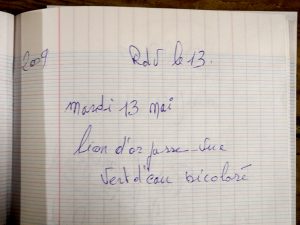 2009
RdV le 13.
mardi 13 mai
lion d'or passe-vue
vert d'eau bicolore